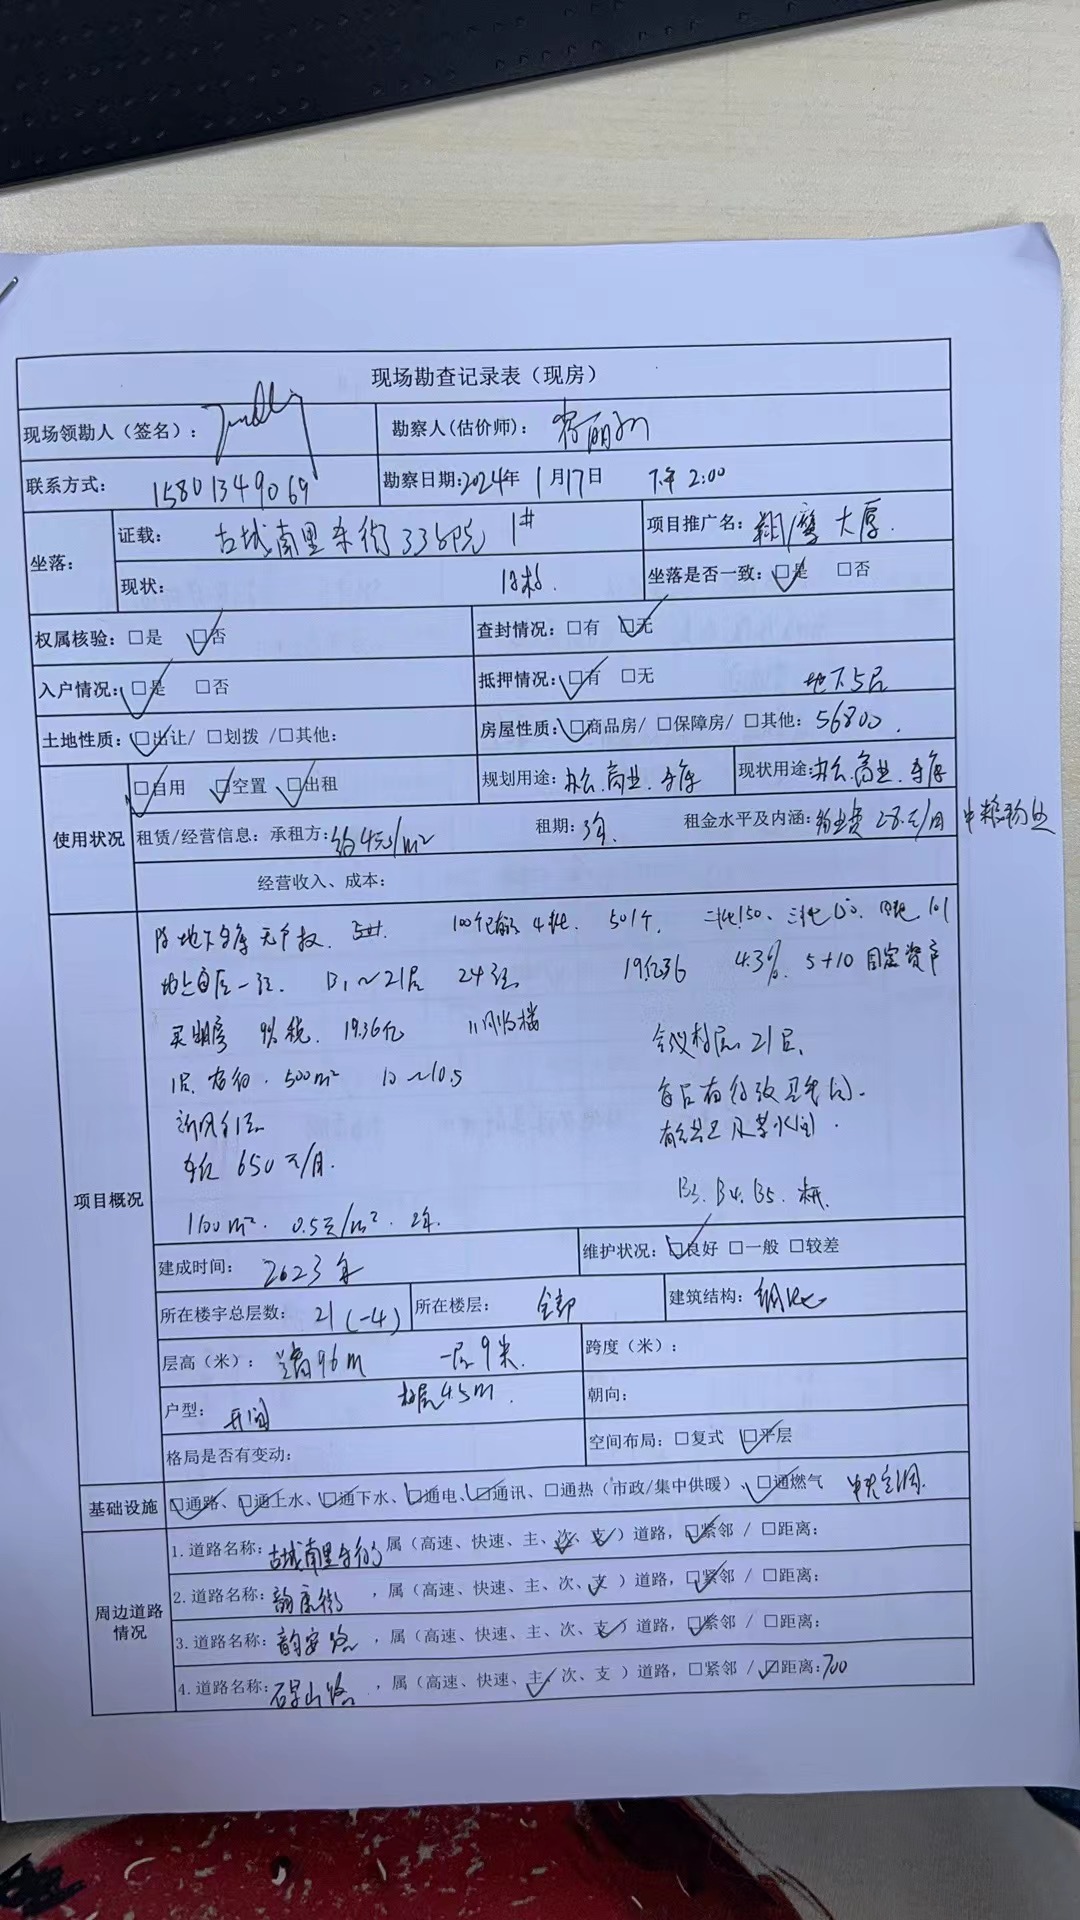 现场勘查记录表（现房）
现场领勘人（签名）： 勘察人(估价师)： 蒋丽
联系方式： 15801349069 勘察日期:2024年 1月17日 下午 2:00
坐落： 证载： 古城南里东街33号院 1# 项目推广名： 翔鹰大厦.
现状： 坐落是否一致：□是 □否
权属核验：□是 □否 查封情况：□有 □无
入户情况：□是 □否 抵押情况：□有 □无 地下5层
土地性质：□出让/ □划拨 /□其他： 房屋性质：□商品房/ □保障房/ □其他：56800.
使用状况 □自用 □空置 □出租 规划用途：办公.商业.车库 现状用途：办公.商业.车库
租赁/经营信息：承租方：约4元/m² 租期：3年. 租金水平及内涵：物业费 28.元/月 中粮物业
经营收入、成本：
项目概况
地下车库无产权. 100个 501个. 二地150、三地150. 四地 101
B1～21层 24 19亿36 4.3%. 5+10 固定资产
税. 19.36亿 11月收楼
1层 500m² 10～10.5 21层.
新风 每层有 卫生间.
车位 650元/月. 茶水间.
B3. B4. B5.
1100m². 0.5元/m². 2年.
建成时间： 2023年 维护状况：□良好 □一般 □较差
所在楼宇总层数： 21(-4) 所在楼层： 全部 建筑结构：钢砼
层高（米）： 96m 一层9米. 跨度（米）：
户型： 开间 标层4.5m. 朝向：
格局是否有变动： 空间布局：□复式 □平层
基础设施 □通路、□通上水、□通下水、□通电、□通讯、□通热（市政/集中供暖）、□通燃气 中央空调.
周边道路情况 1.道路名称：古城南里东街 属（高速、快速、主、次、支）道路，□紧邻 / □距离：
2.道路名称：韵康街 ，属（高速、快速、主、次、支 ）道路，□紧邻 / □距离：
3.道路名称：韵安路 ，属（高速、快速、主、次、支）道路，□紧邻 / □距离：
4.道路名称：石景山路 ，属（高速、快速、主、次、支 ）道路，□紧邻 / □距离：700